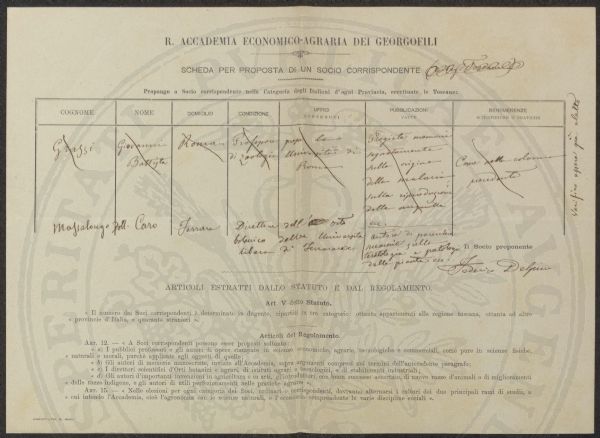 R. ACCADEMIA ECONOMICO-AGRARIA DEI GEORGOFILI
SCHEDA PER PROPOSTA DI UN SOCIO CORRISPONDENTE
Propongo a Socio corrispondente nella Categoria degli Italiani d'ogni Provincia, eccettuate le Toscane:
COGNOME NOME DOMICILIO CONDIZIONE UFFIZI PUBBLICAZIONI FATTE BENEMERENZE
Grassi Giovanni Battista Roma Professore di Zoologia Università di Roma
memorie sull'origine della malaria sulla riproduzione delle anguille
Come nella colonna precedente
Massalongo Dott. Caro Ferrara Direttore dell' orto botanico della Università libera di Ferrara
autore di parecchie memorie sulla teratologia e patologia delle piante ecc.
Il Socio proponente
Federico Delpino
ARTICOLI ESTRATTI DALLO STATUTO E DAL REGOLAMENTO.
Art. V dello Statuto.
« Il numero dei Soci corrispondenti è determinato in dugento, ripartiti in tre categorie: ottanta appartenenti alle regione toscana, ottanta ad altre
« provincie d'Italia, e quaranta stranieri ».
Articoli del Regolamento.
ART. 12. — « A Soci corrispondenti possono esser proposti soltanto:
« a) I pubblici professori e gli autori di opere stampate in scienze economiche, agrarie, tecnologiche e commerciali, come pure in scienze fisiche,
« naturali e morali, purchè applicate agli oggetti di quelle;
« b) Gli autori di memorie manoscritte, inviate all'Accademia, sopra argomenti compresi nei termini dell'antecedente paragrafo;
« c) I direttori scientifici di Orti botanici e agrari, di istituti agrari e tecnologici, e di stabilimenti industriali;
« d) Gli autori d'importanti invenzioni in agricoltura o in arti, gl'introduttori con buon successo accertato, di nuove razze d'animali o di miglioramenti
« delle razze indigene, e gli autori di utili perfezionamenti nelle pratiche agrarie ».
ART. 15. — « Nelle elezioni per ogni categoria dei Soci, ordinari e corrispondenti, dovranno alternarsi i cultori dei due principali rami di studio, a
« cui intende l'Accademia, cioè l'agronomia con le scienze naturali, e l'economia comprendente le varie discipline sociali ».